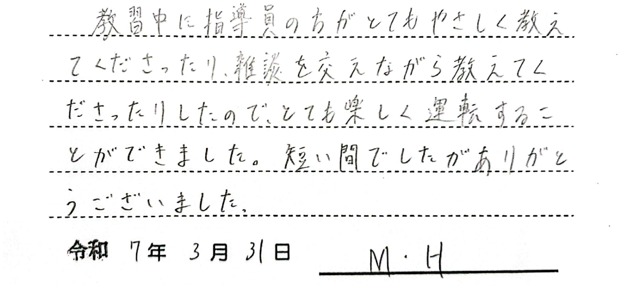 教習中に指導員の方がとてもやさしく教え
てくださったり、雑談を交えながら教えてく
ださったりしたので、とても楽しく運転するこ
とができました。短い間でしたがありがと
うございました。
令和 7年 3月 31日 M・H